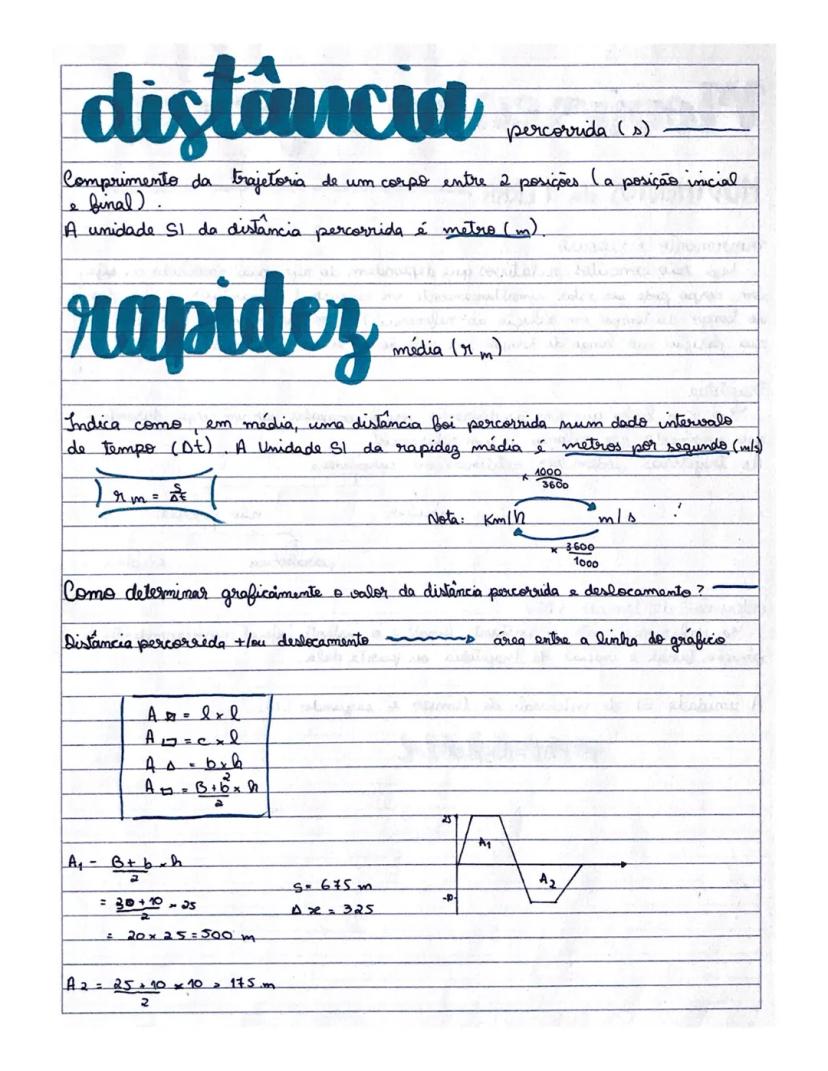 distância percorrida (s)
Comprimento da trajetoria de um corpo entre 2 posições (a posição inicial
e final).
A unidade SI da distância percorrida é metro (m).
rapidez média (r m)
Indica como, em média, uma distância foi percorrida num dado intervalo
de tempo (Δt). A Unidade SI da rapidez média é metros por segundo (m/s)
r m = s/Δt
× 1000/3600
Nota: Km/h m/s !
× 3600/1000
Como determinar graficamente o valor da distância percorrida e deslocamento?
Distância percorrida +/ou deslocamento → área entre a linha do gráfico
A □ = l × l
A ▭ = c × l
A △ = b×h/2
A = B+b/2 × h
25
A1
A2
-10
A1 - B+b/2 × h
= 30+10/2 × 25
= 20 × 25 = 500 m
S = 675 m
Δx = 325
A2 = 25+10/2 × 10 = 175 m